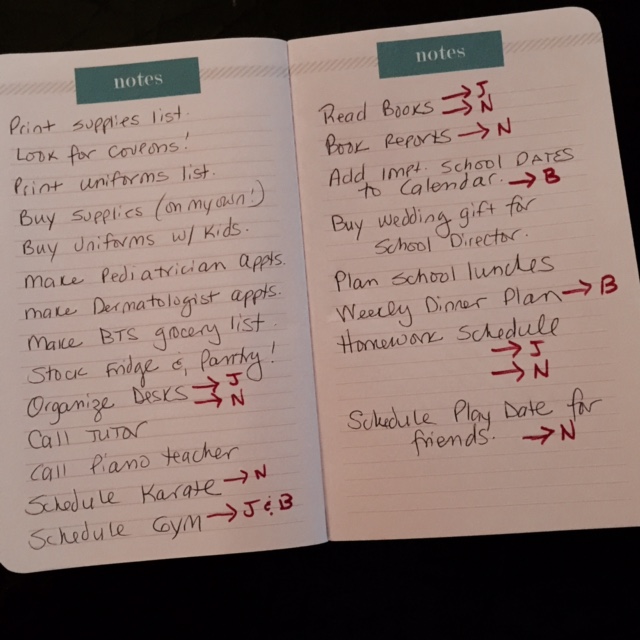 notes
Print supplies list.
Look for coupons!
Print uniforms list.
Buy supplies (on my own!)
Buy Uniforms w/ Kids.
Make Pediatrician appts.
Make Dermatologist appts.
Make BTS grocery list.
Stock Fridge &, Pantry!
Organize Desks → J
→ N
Call TUTOR
Call Piano teacher
Schedule Karate → N
Schedule Gym → J & B
notes
Read Books → J
→ N
Book Reports → N
Add Impt. School DATES
to Calendar. → B
Buy wedding gift for
School Director.
Plan School lunches
Weekly Dinner Plan → B
Homework Schedule
→ J
→ N
Schedule Play Date for
friends. → N